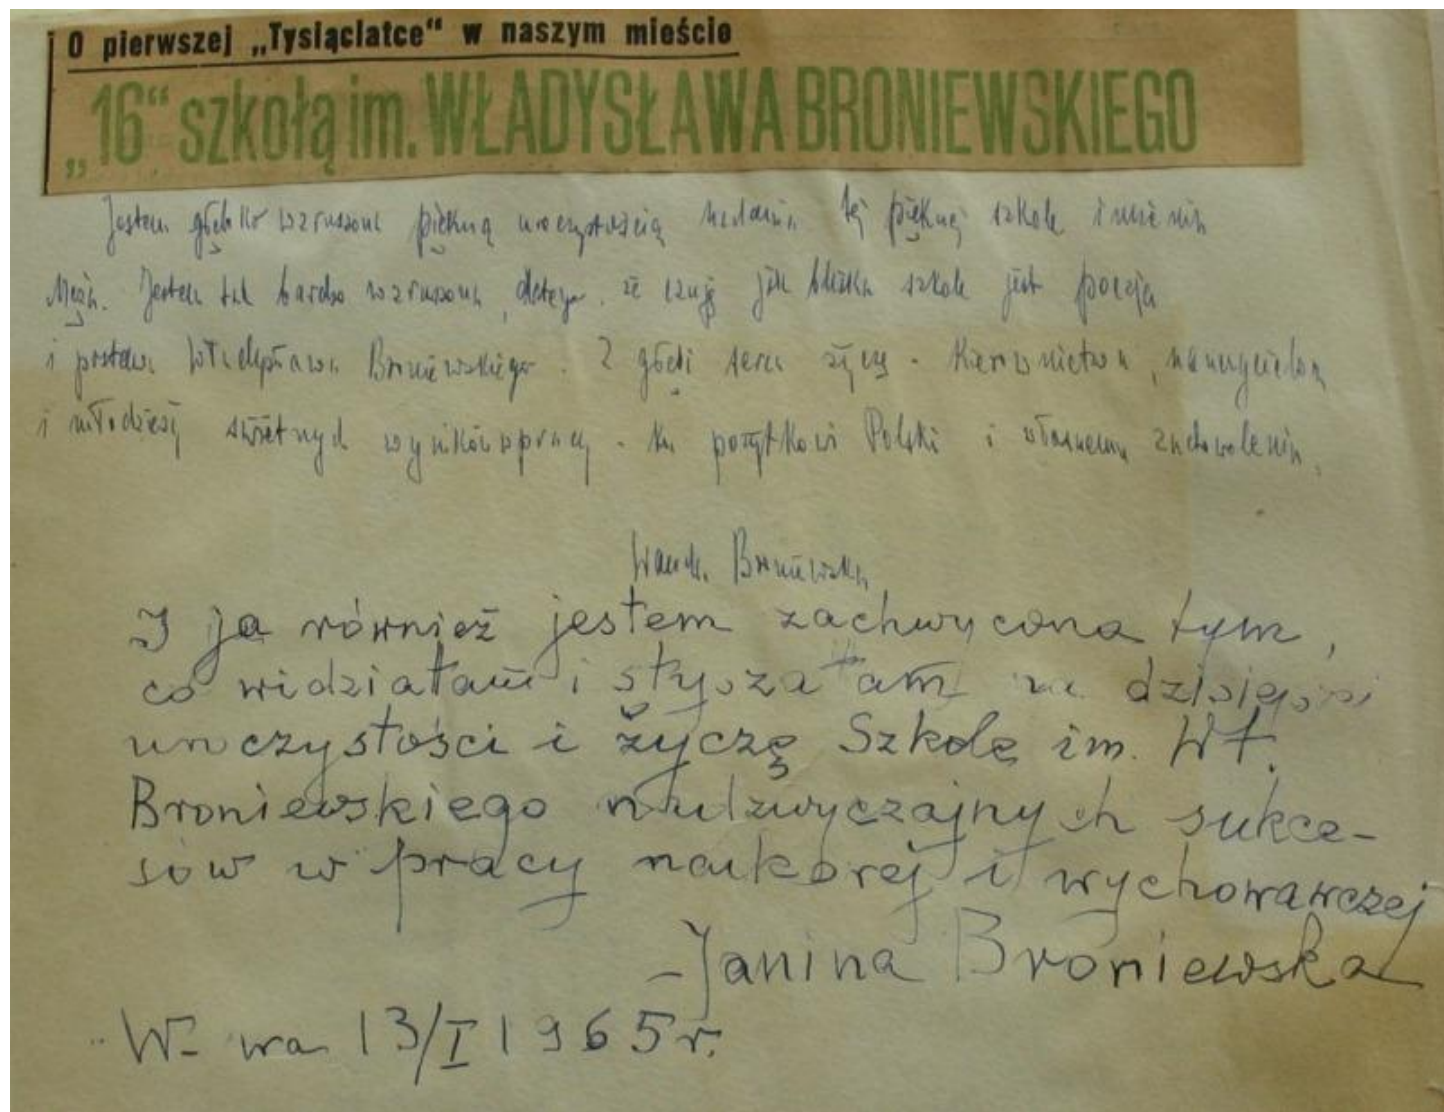 O pierwszej „Tysiąclatce“ w naszym mieście
„16“ szkołą im. WŁADYSŁAWA BRONIEWSKIEGO
Jestem głęboko wzruszona piękną uroczystością nadania tej pięknej szkole imienia
Męża. Jestem tak bardzo wzruszona, dlatego, że czuję jak bliska szkole jest poezja
i postawa Władysława Broniewskiego. Z głębi serca życzę - Kierownictwu, nauczycielom
i młodzieży świetnych wyników w pracy - ku pożytkowi Polski i własnemu zadowoleniu.
Wanda Broniewska
I ja również jestem zachwycona tym,
co widziałam i słyszałam na dzisiejszej
uroczystości i życzę Szkole im. Wł.
Broniewskiego nadzwyczajnych sukce-
sów w pracy naukowej i wychowawczej
- Janina Broniewska
W-wa 13/I 1965 r.